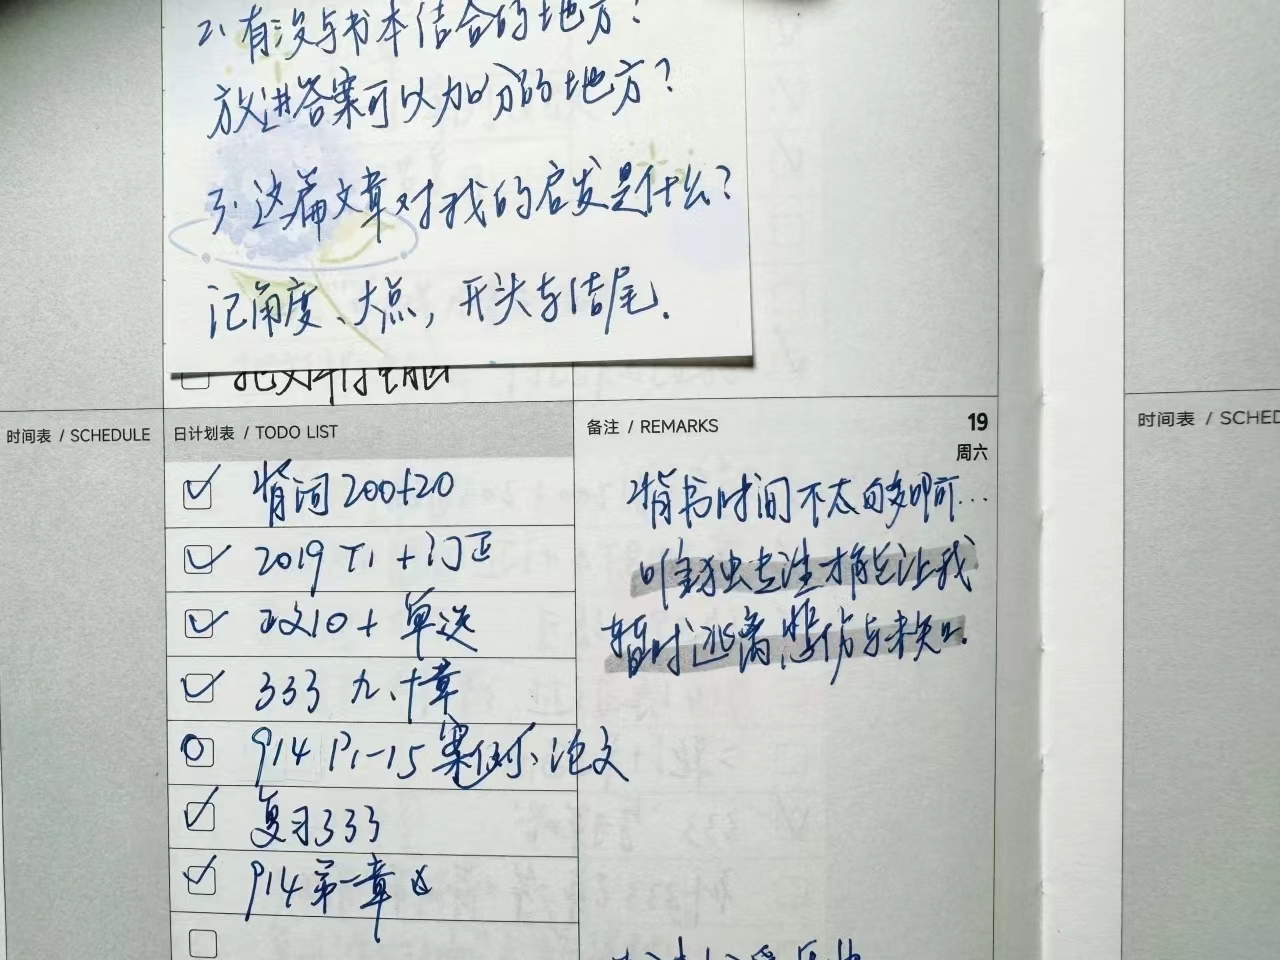 2、有没与书本结合的地方？
放进答案可以加分的地方？
3、这篇文章对我的启发是什么？
记角度、大点，开头与结尾.
时间表 / SCHEDULE
日计划表 / TODO LIST
背词 200+20
2019 T1 + 订正
政10 + 单选
333 九、十章
914 P1-15 案例、论文
复习333
914 第一章
备注 / REMARKS
19
周六
背书时间不太够啊可…
唯独专注才能让我
暂时逃离悲伤与未知.
时间表 / SCHED